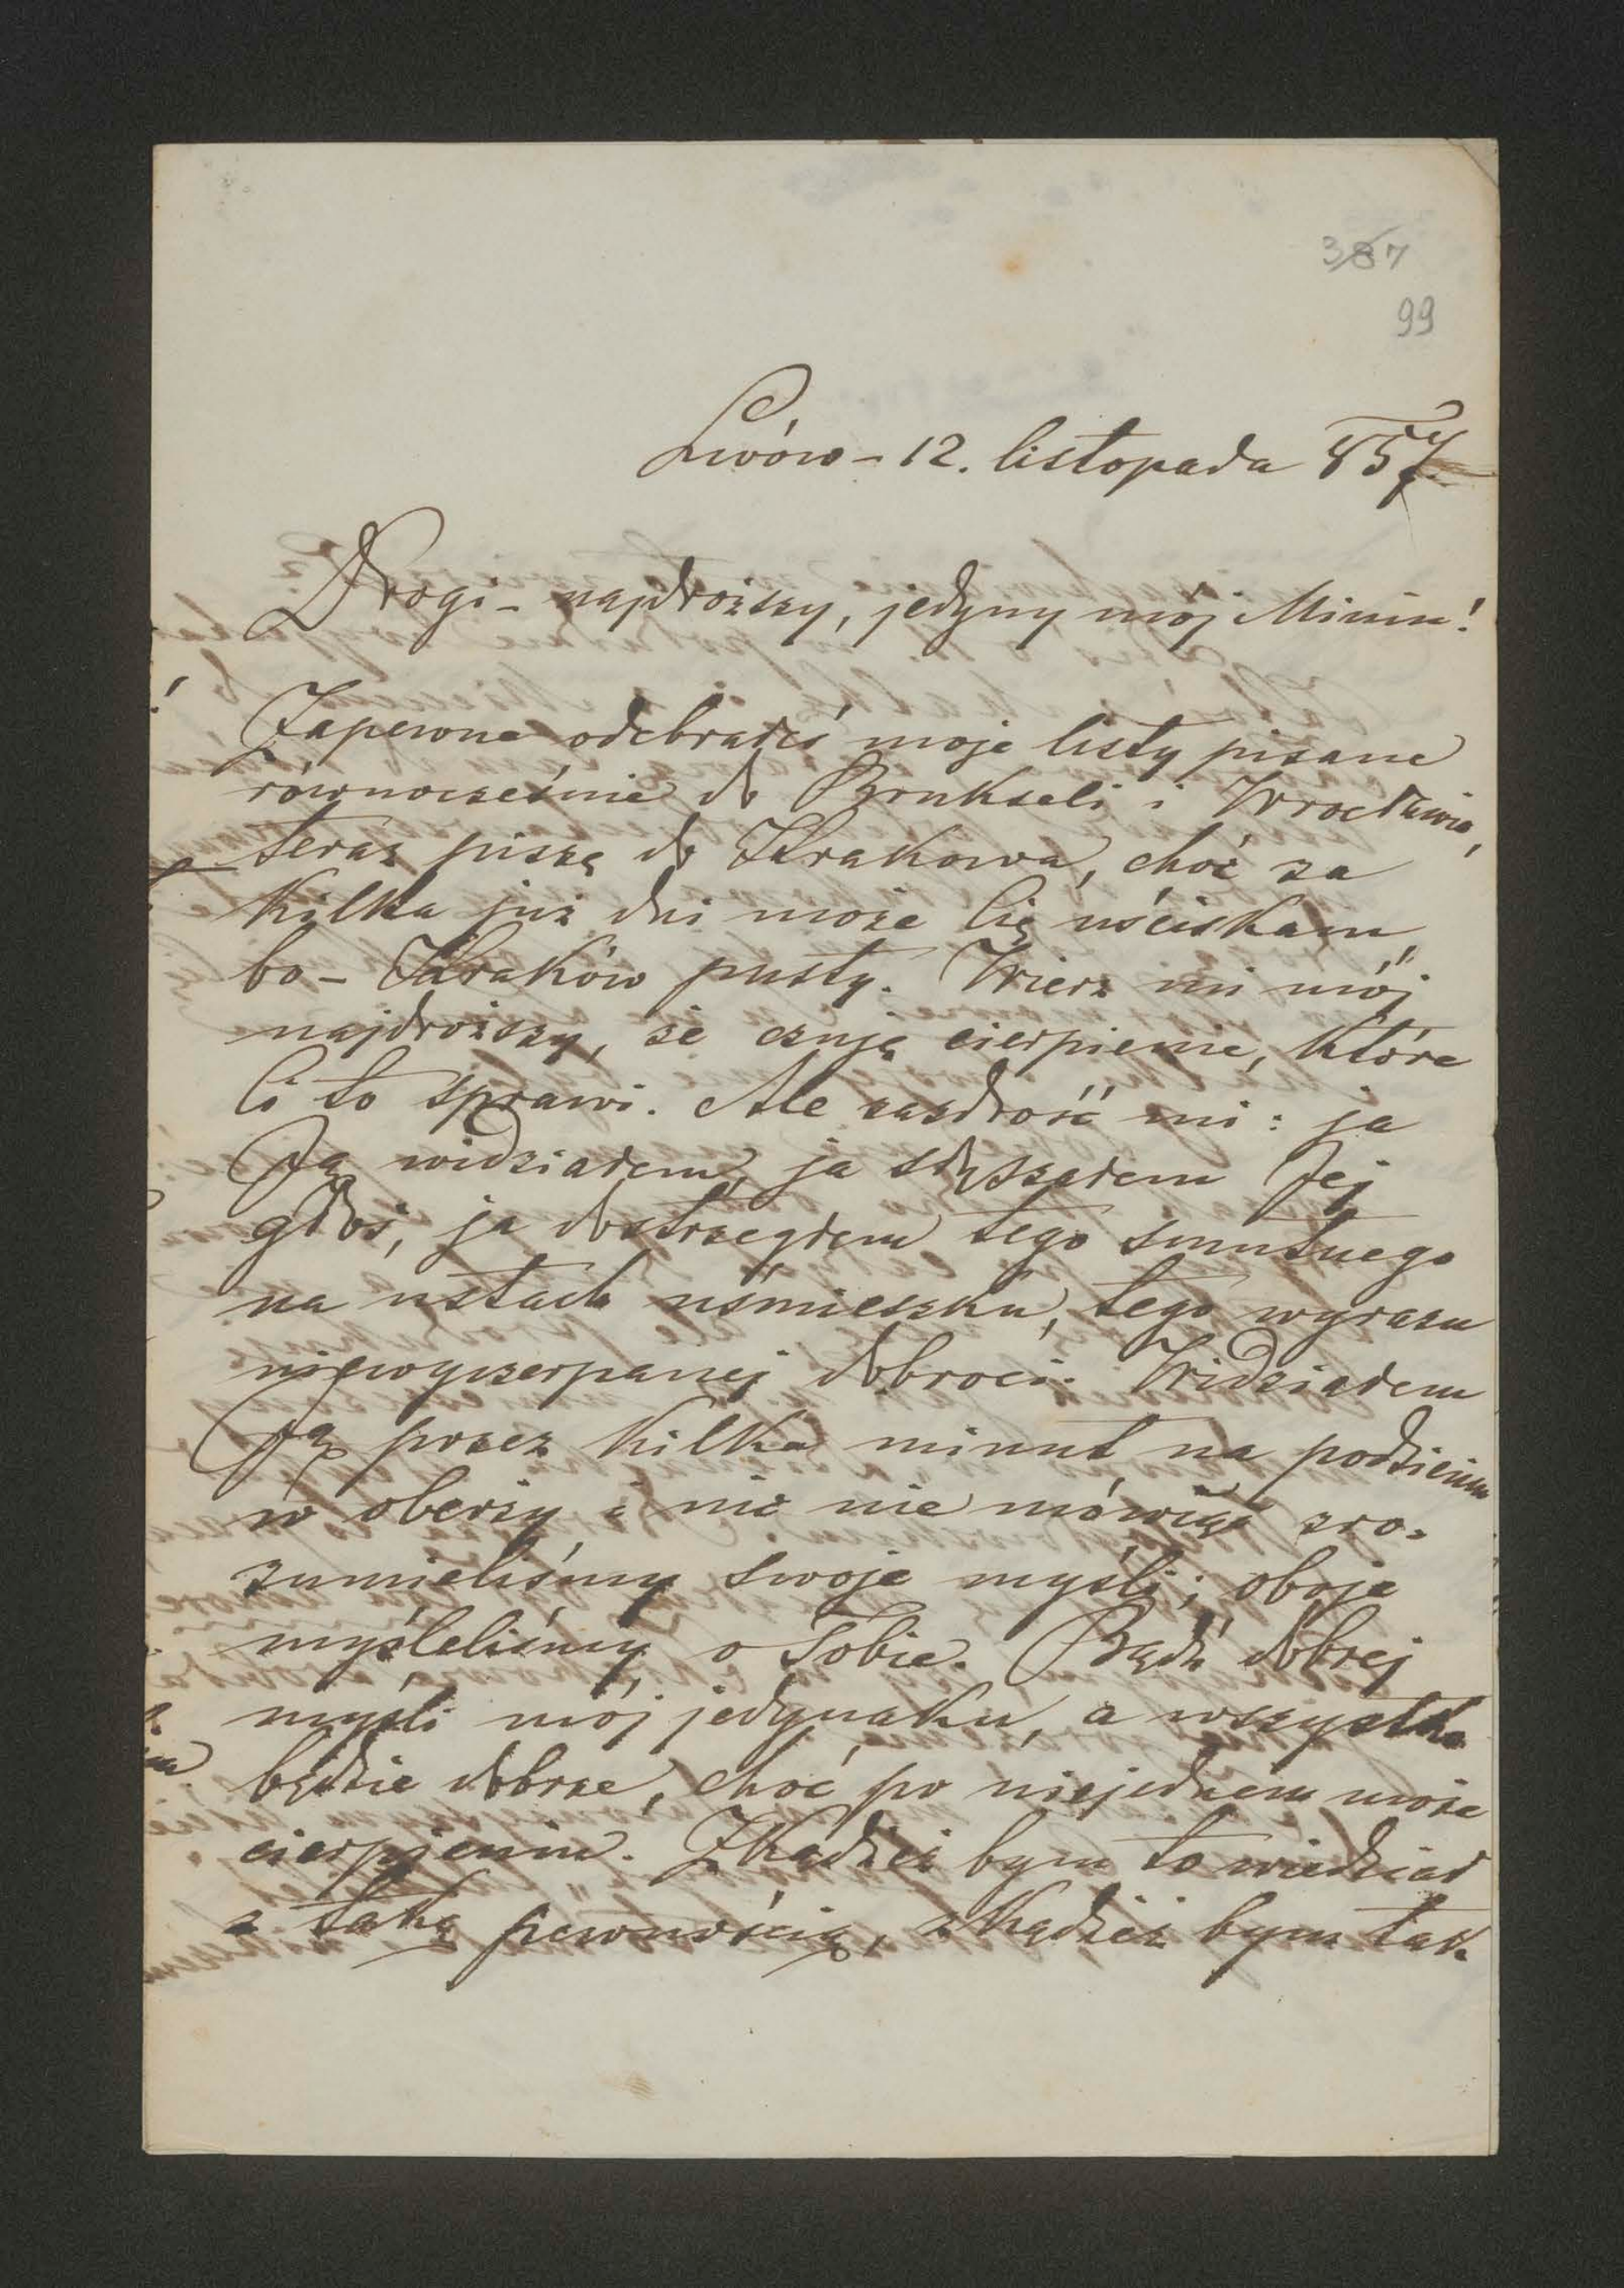 387
99
Lwów – 12. listopada 857
Drogi – najdroższy, jedyny mój !
Zapewne odebrałeś moje listy pisane
równocześnie do Brukseli i Wrocławia,
teraz piszę do Krakowa, choć za
kilka już dni może Cię uściskam,
bo – Kraków pusty. Wierz mi mój
najdroższy, że czuję cierpienie, które
Ci to sprawi. Ale zazdrość mi: ja
Ją widziałem, ja słyszałem Jej
głos, ja dostrzegłem tego smutnego
na ustach uśmieszku, tego wyrazu
niewyczerpanej dobroci. Widziałem
Ją przez kilka minut na
w oberży i nic nie mówiąc zro-
zumieliśmy swoje myśli; oboje
myśleliśmy o Tobie. Bądź dobrej
myśli mój jedynaku, a wszystko
będzie dobrze, choć po niejednem może
cierpieniu. Zkądżeż bym to wiedział
z taką pewnością, zkądżeż bym tak